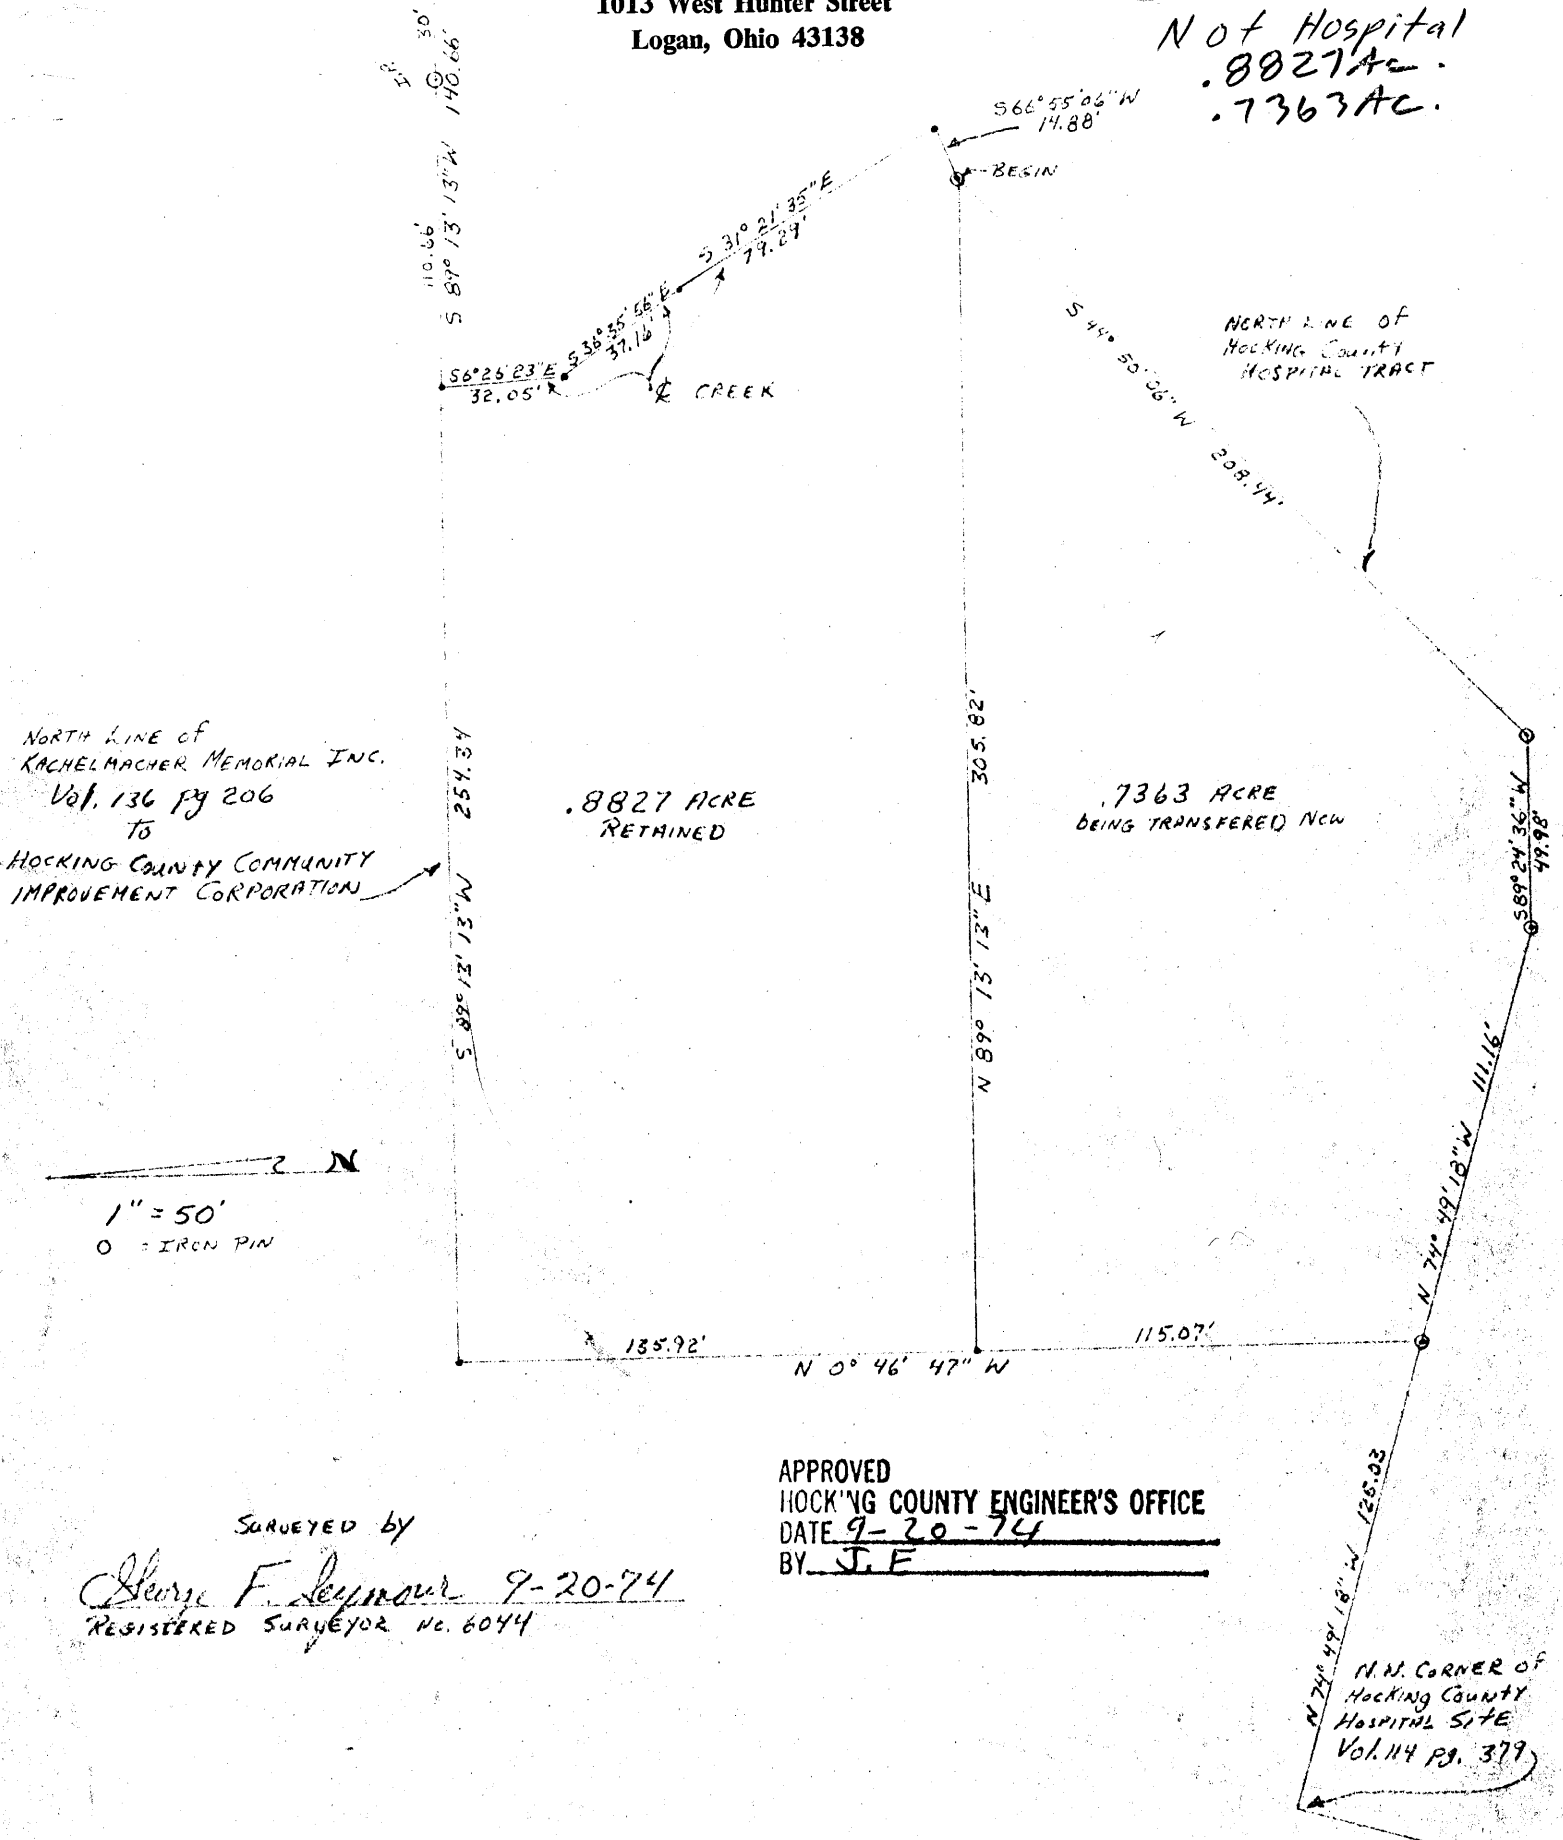 1013 West Hunter Street
Logan, Ohio 43138
Not Hospital
.8827 Ac.
.7363 AC.
30'
I.P.
S 89° 13' 13" W 140.66'
110.66'
S66° 55' 06" W
14.88'
BEGIN
S 31° 21' 35" E
79.29'
S 36° 35' 56" E
37.16'
S6° 26' 23" E
32.05'
℄ CREEK
S 44° 50' 06" W 208.44'
NORTH LINE OF
HOCKING COUNTY
HOSPITAL TRACT
NORTH LINE OF
KACHELMACHER MEMORIAL INC.
Vol. 136 pg 206
TO
HOCKING COUNTY COMMUNITY
IMPROVEMENT CORPORATION
S 89° 13' 13" W 254.34
.8827 ACRE
RETAINED
N 89° 13' 13" E 305.82'
.7363 ACRE
BEING TRANSFERED NOW
S89° 24' 36" W
49.98'
N 74° 49' 18" W 111.16'
N
1" = 50'
O = IRON PIN
135.92'
N 0° 46' 47" W
115.07'
N 74° 49' 18" W 126.03
APPROVED
HOCKING COUNTY ENGINEER'S OFFICE
DATE 9-20-74
BY J.F
SURVEYED by
George F. Seymour 9-20-74
REGISTERED SURVEYOR No. 6044
N.W. CORNER OF
Hocking County
HOSPITAL SITE
Vol. 114 pg. 379